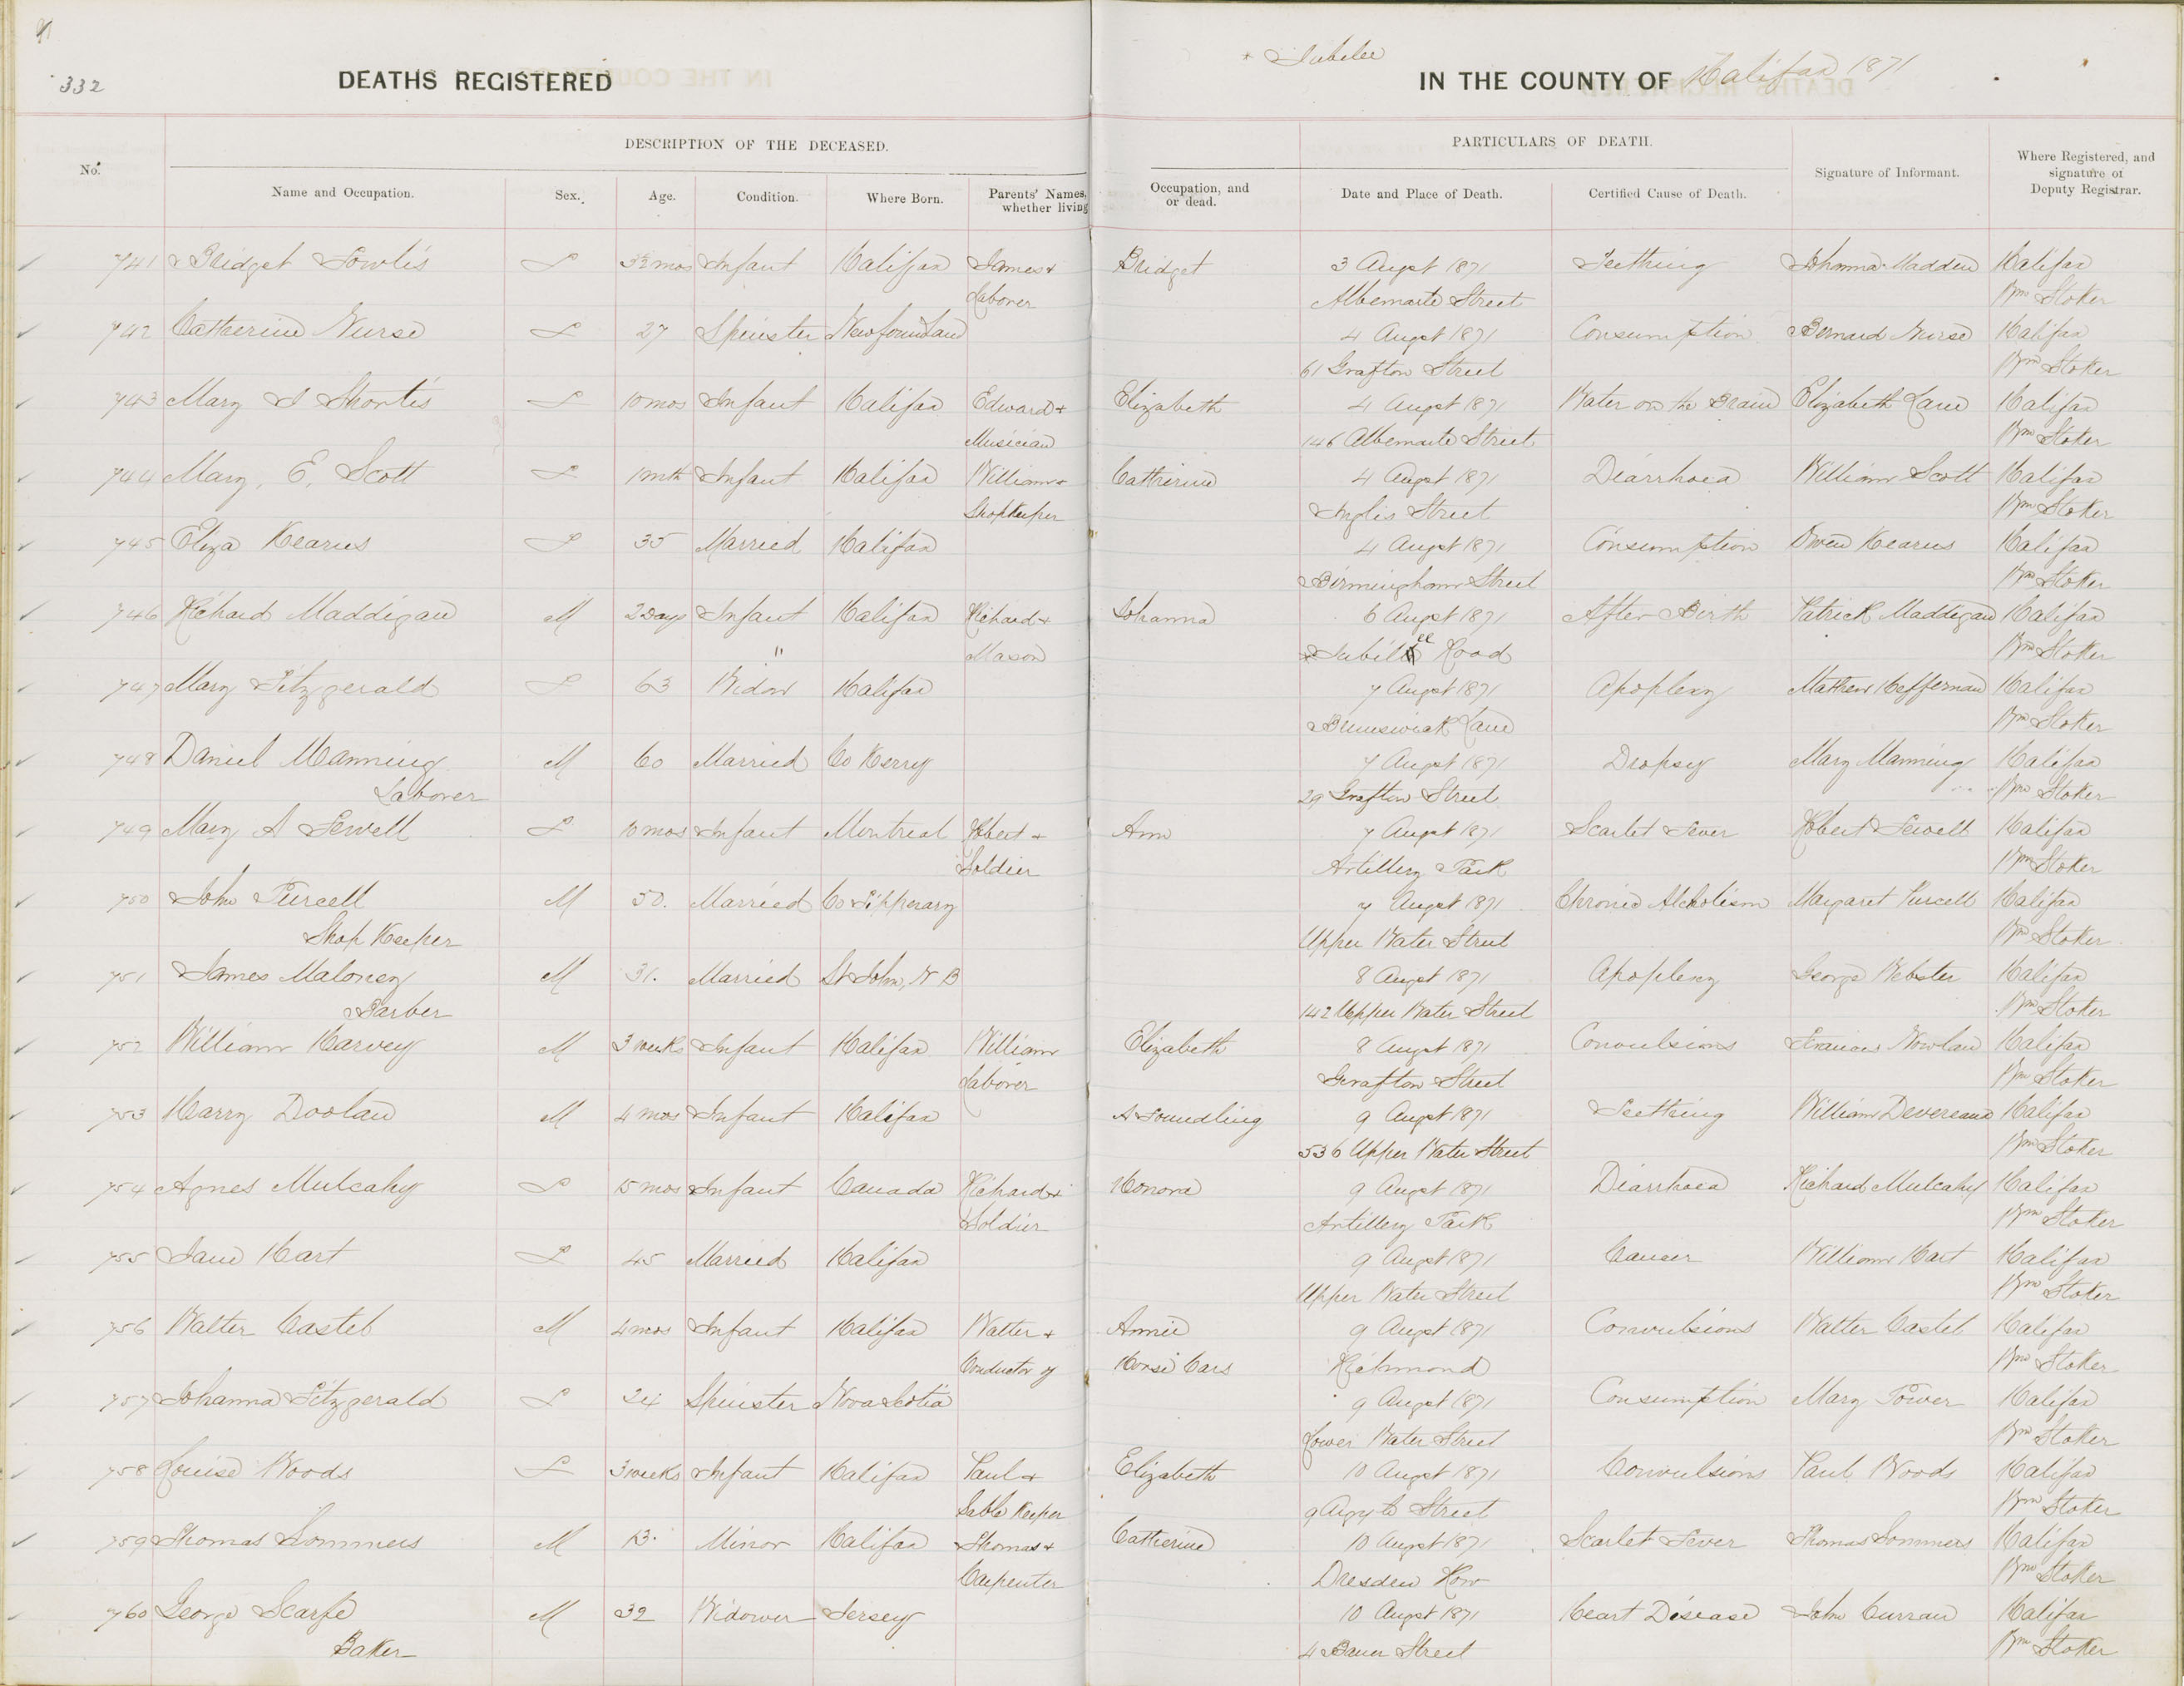 332
* Jubilee
DEATHS REGISTERED IN THE COUNTY OF Halifax 1871
DESCRIPTION OF THE DECEASED. PARTICULARS OF DEATH.
No. Name and Occupation. Sex. Age. Condition. Where Born. Parents' Names, whether living Occupation, and or dead. Date and Place of Death. Certified Cause of Death. Signature of Informant. Where Registered, and signature of Deputy Registrar.
741 Bridget Fowlis F 3½ mos Infant Halifax James + Bridget 3 Augst 1871 Teething Johanna Madden Halifax
Laborer Albemarle Street Wm Stoker
742 Catherine Nurse F 27 Spinster Newfoundland 4 Augst 1871 Consumption Bernard Nurse Halifax
61 Grafton Street Wm Stoker
743 Mary J Shortis F 10 mos Infant Halifax Edward + Elizabeth 4 Augst 1871 Water on the Brain Elizabeth Lane Halifax
Musician 146 Albemarle Street Wm Stoker
744 Mary. E. Scott F 1 mth Infant Halifax William + Catherine 4 Augst 1871 Diarrhoea William Scott Halifax
Shopkeeper Inglis Street Wm Stoker
745 Eliza Kearns F 35 Married Halifax 4 Augst 1871 Consumption Owen Kearns Halifax
Birmingham Street Wm Stoker
746 Richard Maddigan M 2 Days Infant Halifax Richard + Johanna 6 Augst 1871 After Birth Patrick Maddigan Halifax
" Mason * Jubilee Road Wm Stoker
747 Mary Fitzgerald F 63 Widow Halifax 7 Augst 1871 Apoplexy Mathew Heffernan Halifax
Brunswick Lane Wm Stoker
748 Daniel Manning M 60 Married Co Kerry 7 Augst 1871 Dropsy Mary Manning Halifax
Laborer 29 Grafton Street Wm Stoker
749 Mary A Sewell F 10 mos Infant Montreal Robert + Ann 7 Augst 1871 Scarlet Fever Robert Sewell Halifax
Soldier Artillery Park Wm Stoker
750 John Purcell M 50. Married Co Tipperary 7 Augst 1871 Chronic Alcholism Margaret Purcell Halifax
Shop Keeper Upper Water Street Wm Stoker
751 James Maloney M 31. Married St John, N B 8 Augst 1871 Apoplexy George Webster Halifax
Barber 142 Upper Water Street Wm Stoker
752 William Harvey M 3 weeks Infant Halifax William Elizabeth 8 Augst 1871 Convulsions Frances Nowlan Halifax
Laborer Grafton Street Wm Stoker
753 Harry Doolan M 4 mos Infant Halifax A Foundling 9 Augst 1871 Teething William Devereaux Halifax
536 Upper Water Street Wm Stoker
754 Agnes Mulcahy F 15 mos Infant Canada Richard + Honora 9 Augst 1871 Diarrhoea Richard Mulcahy Halifax
Soldier Artillery Park Wm Stoker
755 Jane Hart F 45 Married Halifax 9 Augst 1871 Cancer William Hart Halifax
Upper Water Street Wm Stoker
756 Walter Castel M 4 mos Infant Halifax Walter + Annie 9 Augst 1871 Convulsions Walter Castel Halifax
Conductor of Horse Cars Richmond Wm Stoker
757 Johanna Fitzgerald F 24 Spinster Nova Scotia 9 Augst 1871 Consumption Mary Power Halifax
Lower Water Street Wm Stoker
758 Louise Woods F 3 weeks Infant Halifax Paul + Elizabeth 10 Augst 1871 Convulsions Paul Woods Halifax
Keeper 9 Argyle Street Wm Stoker
759 Thomas Sommers M 13. Minor Halifax Thomas + Catherine 10 Augst 1871 Scarlet Fever Thomas Sommers Halifax
Carpenter Dresden Row Wm Stoker
760 George Scarfe M 32 Widower Jersey 10 Augst 1871 Heart Disease John Curran Halifax
Baker 4 Bauer Street Wm Stoker